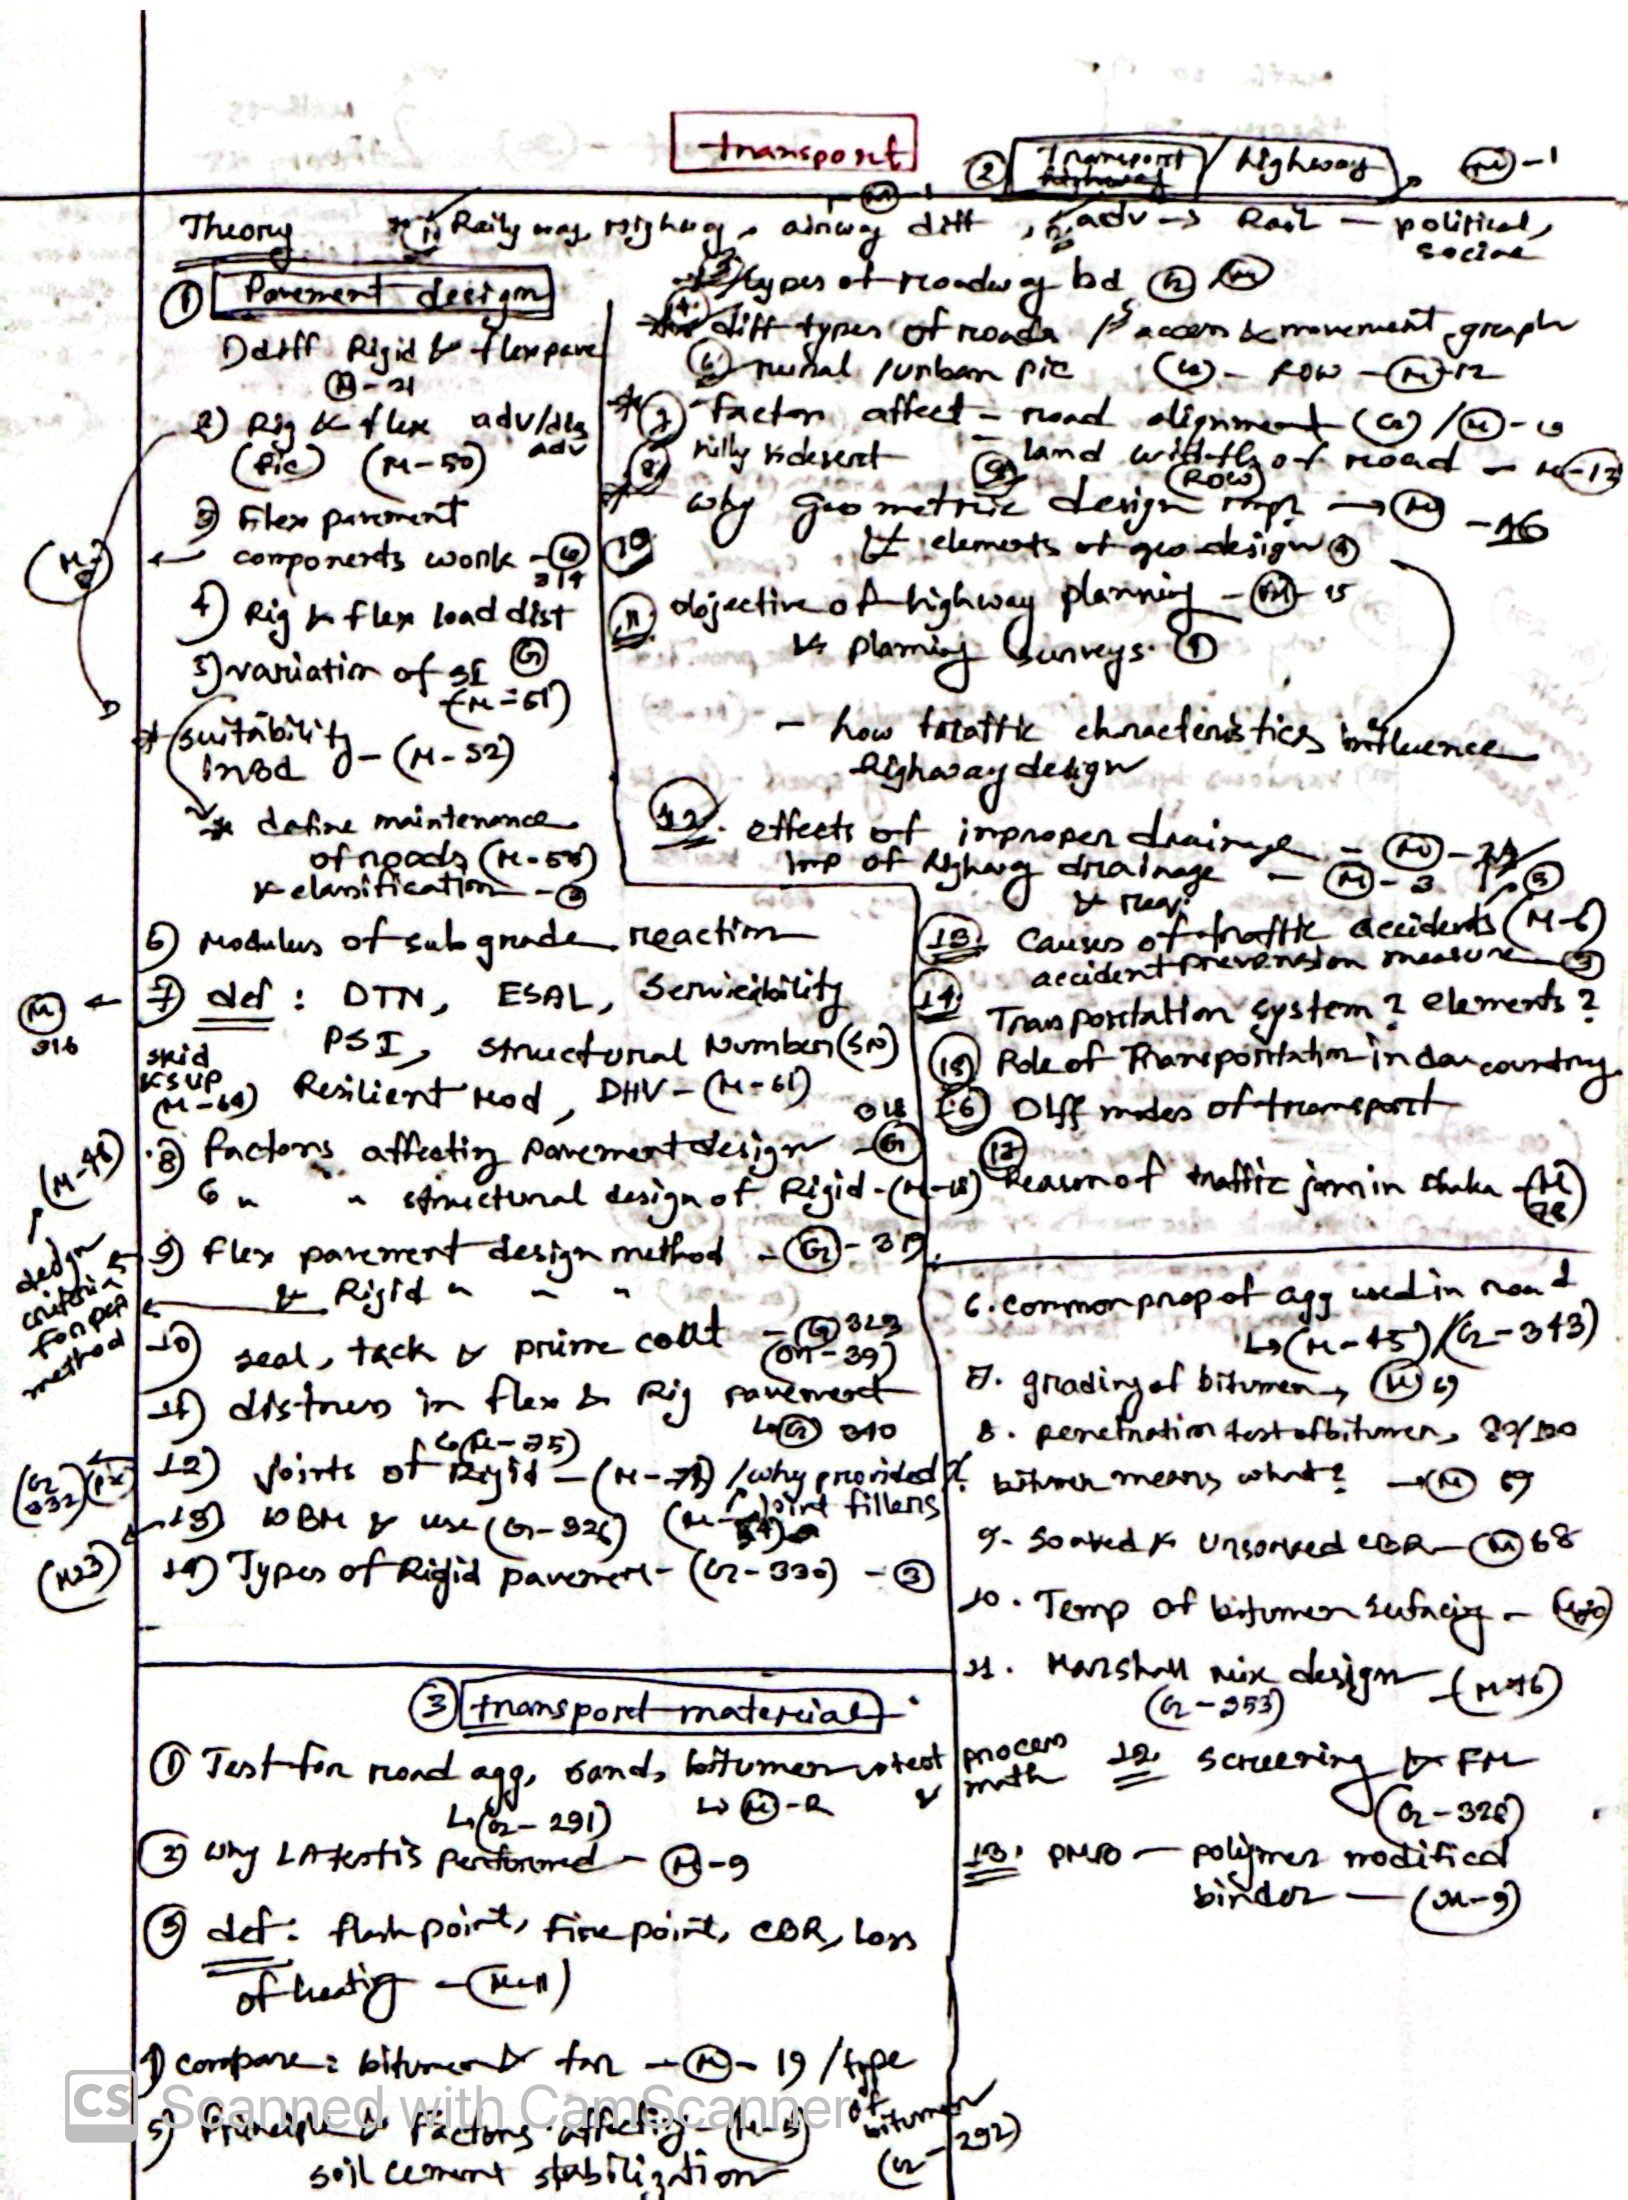 transport
② Transport / highway (M)-1
Theory
1) Railyway, Highway, airway diff, adv → Rail - political,
social
① Pavement design
1) diff Rigid & flex pave
(M)-21
2) Rig & flex adv/dis
adv
(pic) (M-50)
3) Flex pavement
components work - (G)
314
4) Rig & flex load dist
(G)
5) variation of SI
(M-51)
* suitability
in Bd - (M-52)
* define maintenance
of roads (M-58)
& classification
3) types of roadway bd (G) (M)
4. diff types of roads / 5 access & movement graph
6) rural / urban pic (G) - ROW - (M)-12
* 7) factor affect - road alignment (G) / (M)-10
8) hilly & desert 9) land width of road - M-12
(ROW)
why Geometric design imp? → (M) -16
10 & elements of geo design
11. objective of highway planning - (M)-15
& planning surveys.
- how traffic characteristics influence
highway design
12. effects of improper drainage - (M)
imp of highway drainage - (M)-3
& req.
13. causes of traffic accidents (M-6)
accident prevension measure
14. Transportation system? elements?
15) Role of Transportation in dev country
16) Diff modes of transport
17) Reason of traffic jam in Dhaka (M
28)
6) Modulus of subgrade reaction
(M) ← 7) def: DTN, ESAL, Serviciability
316
PSI, structural Number (SN)
skid
& SVP
(M-64)
Resilient Mod, DHV - (M-61)
318
8) factors affecting pavement design - (G)
6 " " structural design of Rigid - (M-18)
(M-46)
design
criteria
for pet
method
9) flex pavement design method - (G)-319
& Rigid " " "
10) seal, tack & prime coat - (G) 323
(M-39)
11) distress in flex & Rig pavement
↳ (M-75) ↳ (G) 340
(G 332) (pic)
12) joints of Rigid - (M-74) / why provided?
joint fillers
13) WBM & use (G-326)
(M23)
14) Types of Rigid pavement - (G-330) - ③
③ transport material
① Test for road agg, sand, bitumen & test process
& math
↳ (G-291) ↳ (M)-2
② Why LA test is performed - (M)-9
③ def: flash point, fire point, CBR, Loss
of heating - (M-11)
4) compare: bitumen & tar - (M)-19 / type
of
bitumen
(G-292)
5) Principle & Factors affecting - (M-5)
soil cement stabilization
6. common prop of agg used in road
↳ (M-45) / (G-343)
7. grading of bitumen, (M) 69
8. penetration test of bitumen, 80/100
bitumen means what? → (M) 69
9. Soaked & Unsoaked CBR - (M) 68
10. Temp of bitumen surfacing -
11. Marshall mix design - (M-46)
(G-353)
12. Screening & FM
(G-328)
13. PMB - polymer modified
binder - (M-9)
CS Scanned with CamScanner